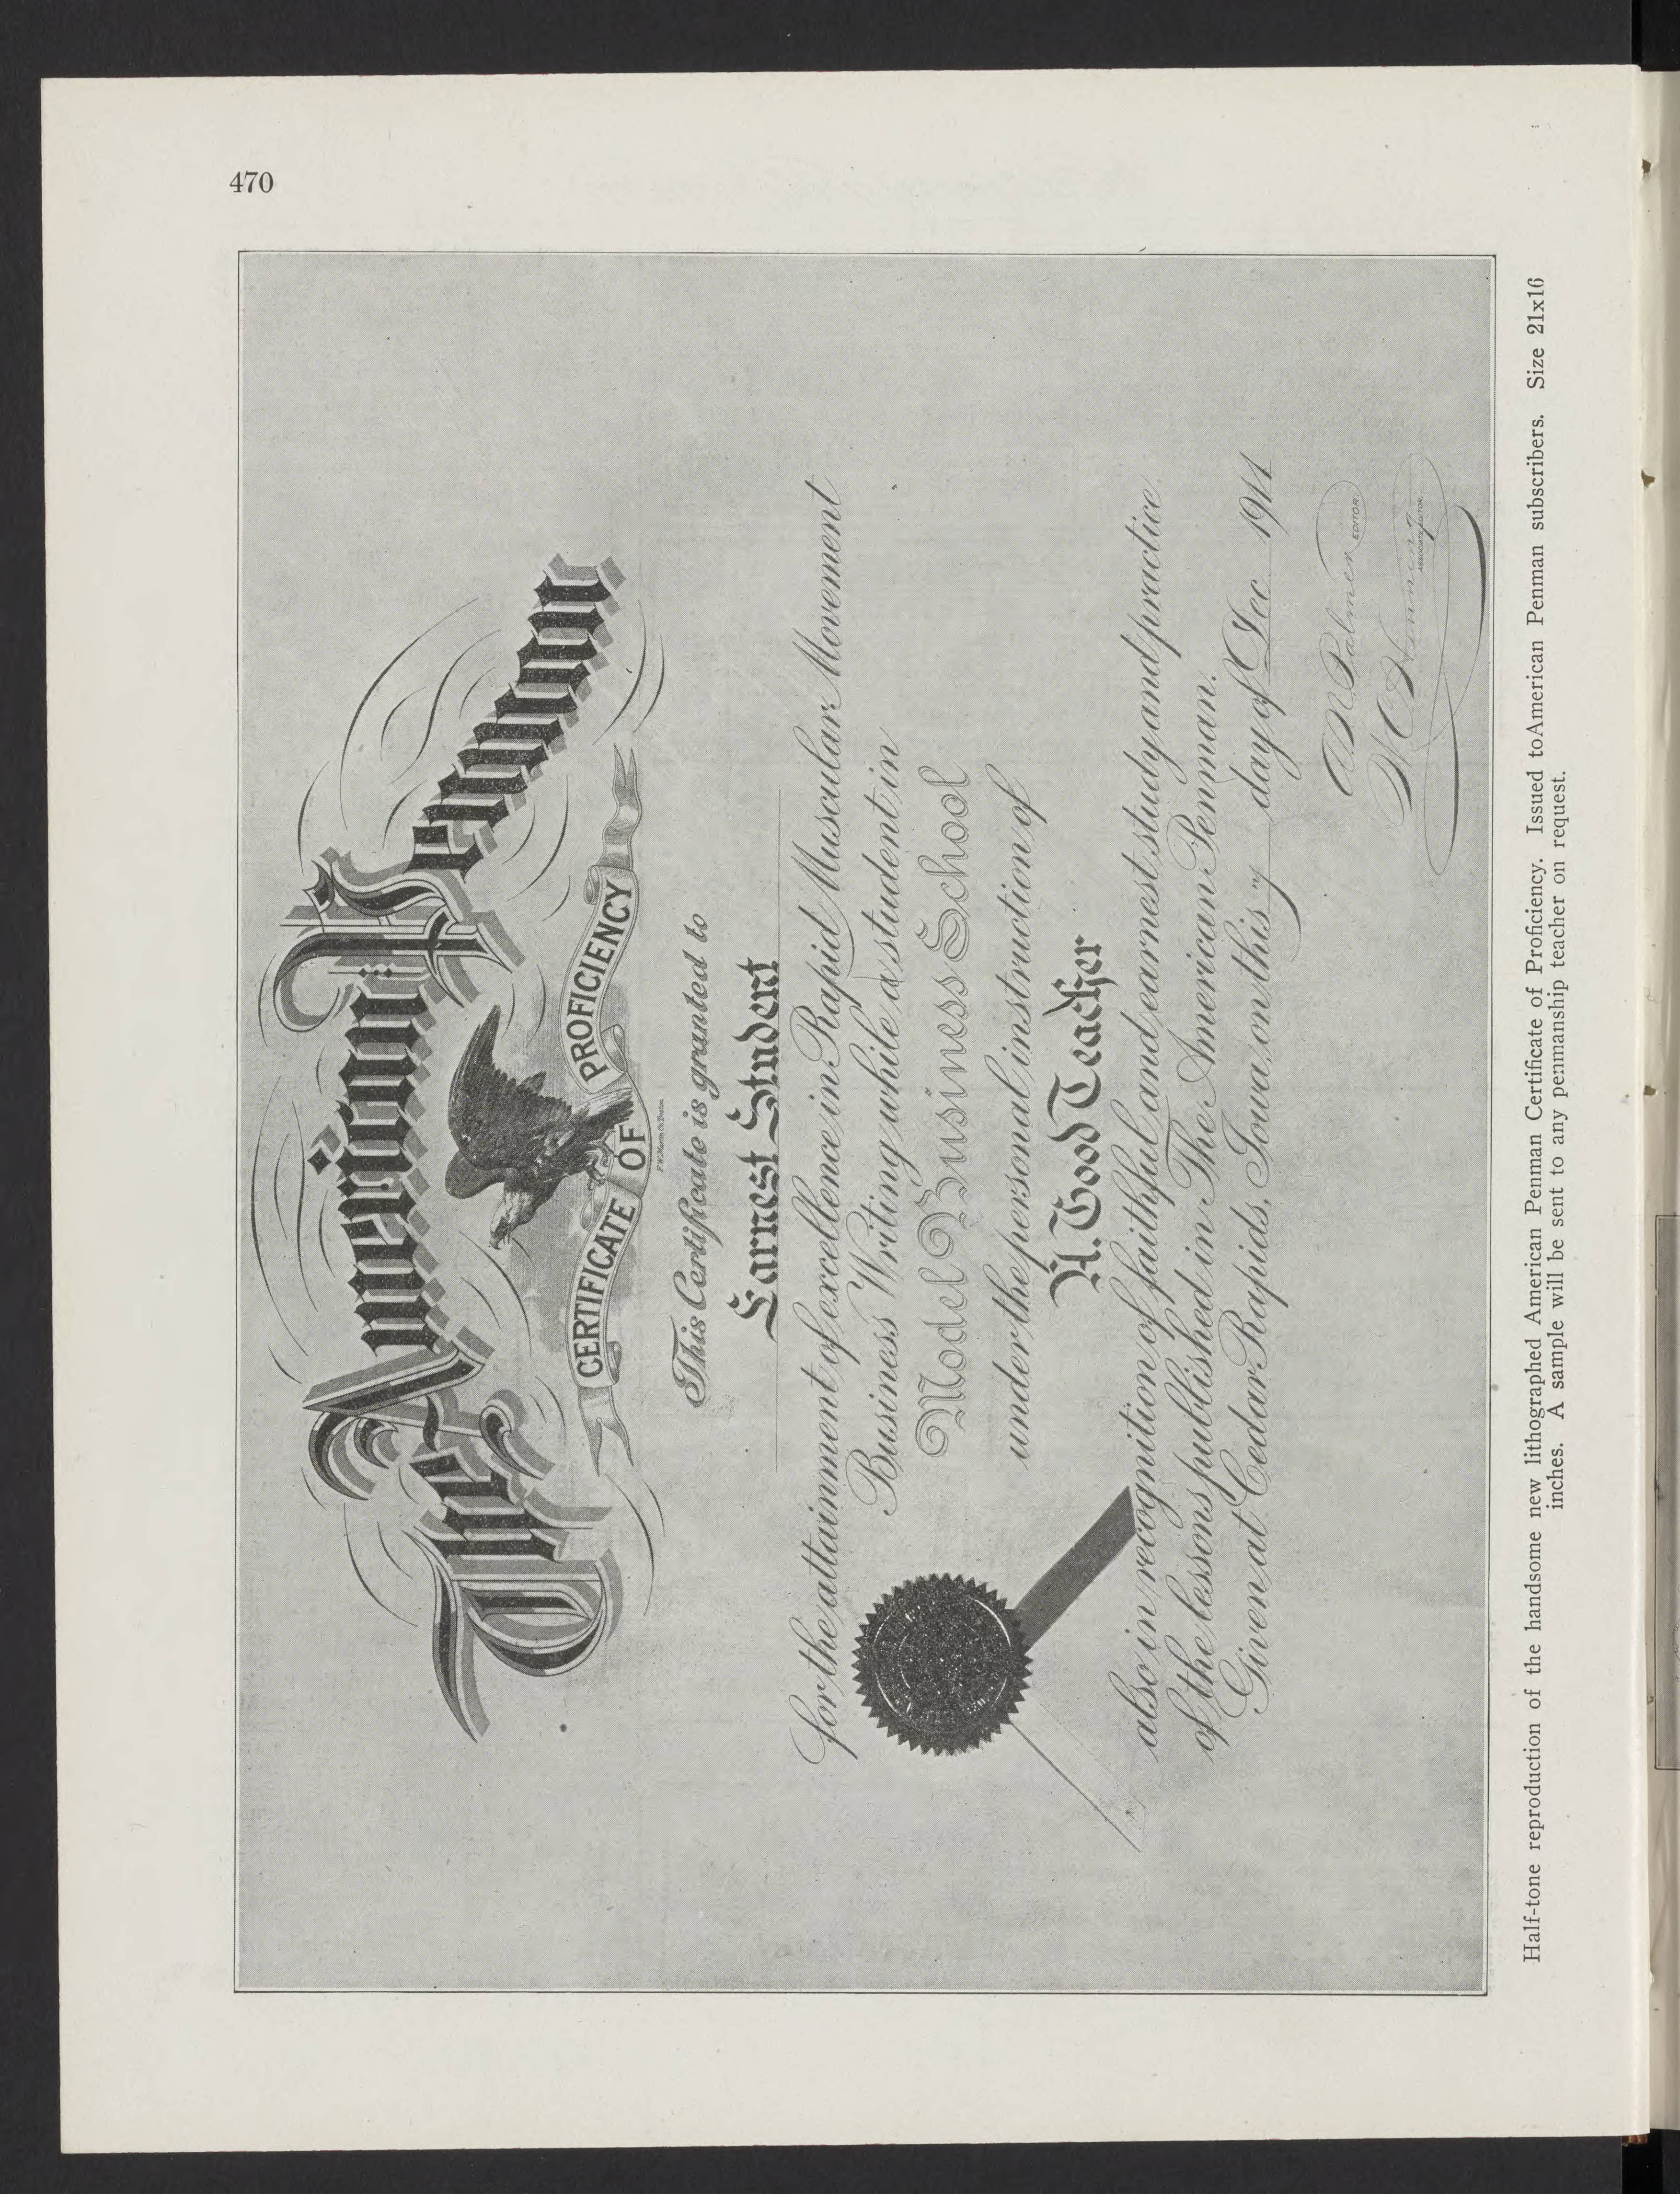 470
The American Penman
CERTIFICATE OF PROFICIENCY
This Certificate is granted to
Earnest Student
for the attainment of excellence in Rapid Muscular Movement
Business Writing while a student in
Model Business School
under the personal instruction of
A. Good Teacher
also in recognition of faithful and earnest study and practice
of the lessons published in The American Penman.
Given at Cedar Rapids, Iowa, on this day of Dec 1911
A N Palmer EDITOR
W C Henning ASSOCIATE EDITOR
Half-tone reproduction of the handsome new lithographed American Penman Certificate of Proficiency. Issued to American Penman subscribers. Size 21x16
inches. A sample will be sent to any penmanship teacher on request.